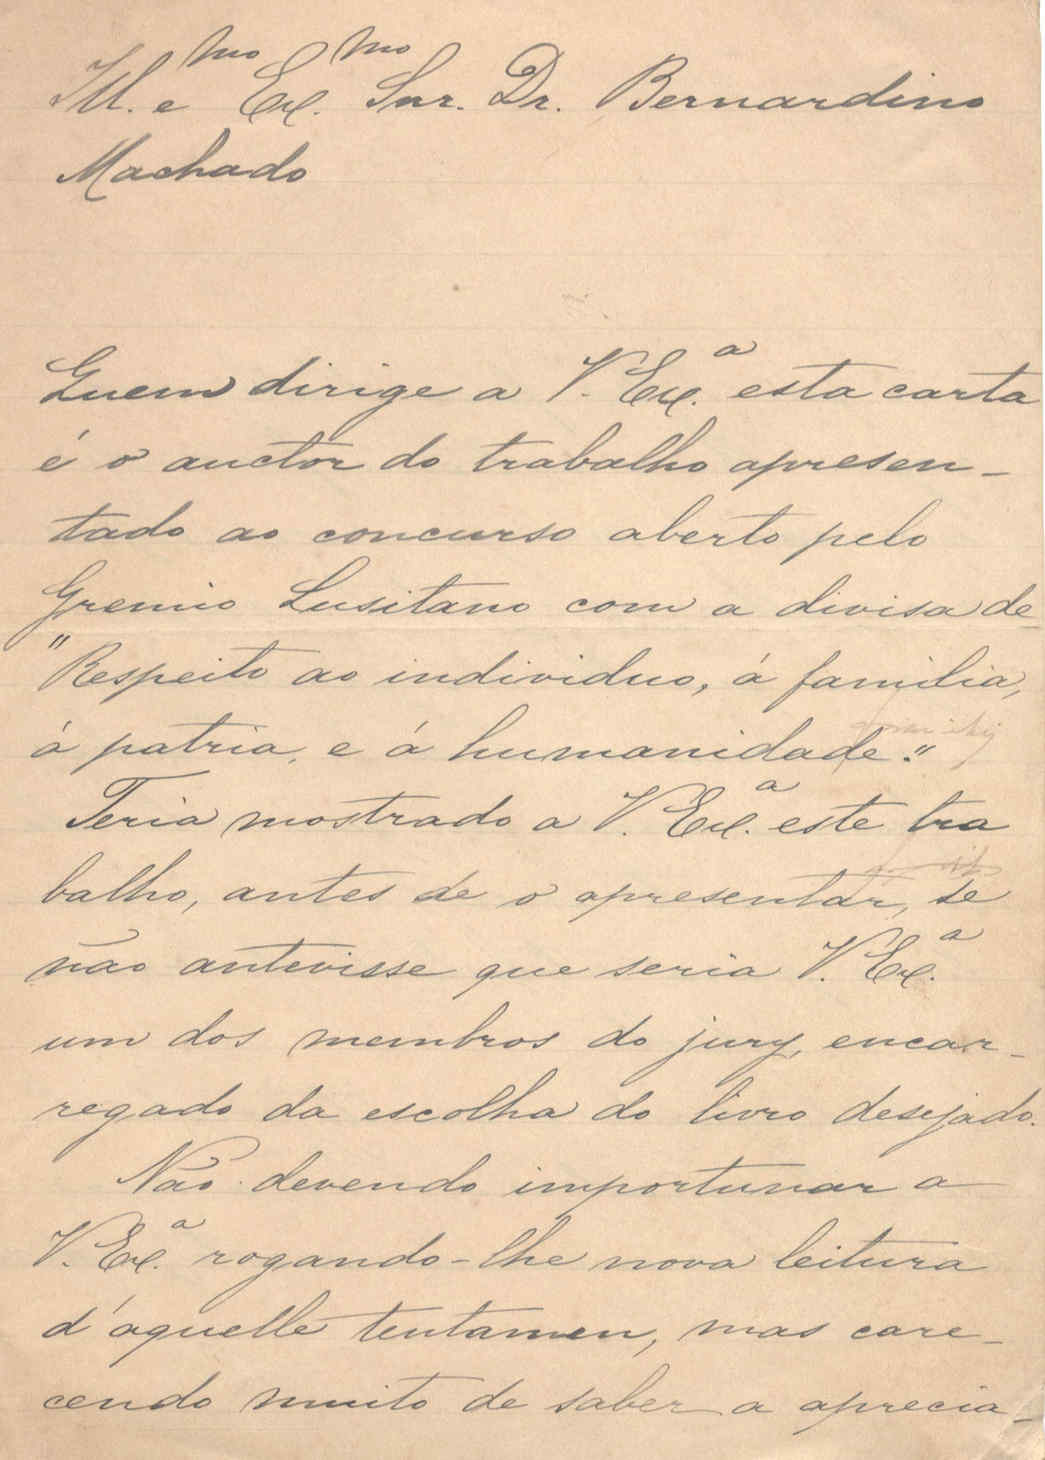 Ill.mo e Ex.mo Snr. Dr. Bernardino
Machado
Quem dirige a V. Ex.a esta carta
é o auctor do trabalho apresen-
tado ao concurso aberto pelo
Gremio Lusitano com a divisa de
"Respeito ao individuo, á familia,
á patria, e á humanidade."
Teria mostrado a V. Ex.a este tra
balho, antes de o apresentar, se
não antevisse que seria V. Ex.a
um dos membros do jury, encar-
regado da escolha do livro desejado.
Não devendo importunar a
V. Ex.a rogando-lhe nova leitura
d'aquelle tentamen, mas care-
cendo muito de saber a aprecia-